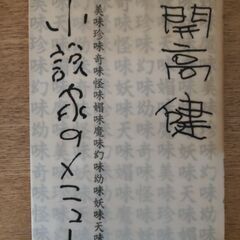 開高健
美味珍味奇味怪味媚味魔味幻味幼味妖味天味
小説家のメニュー